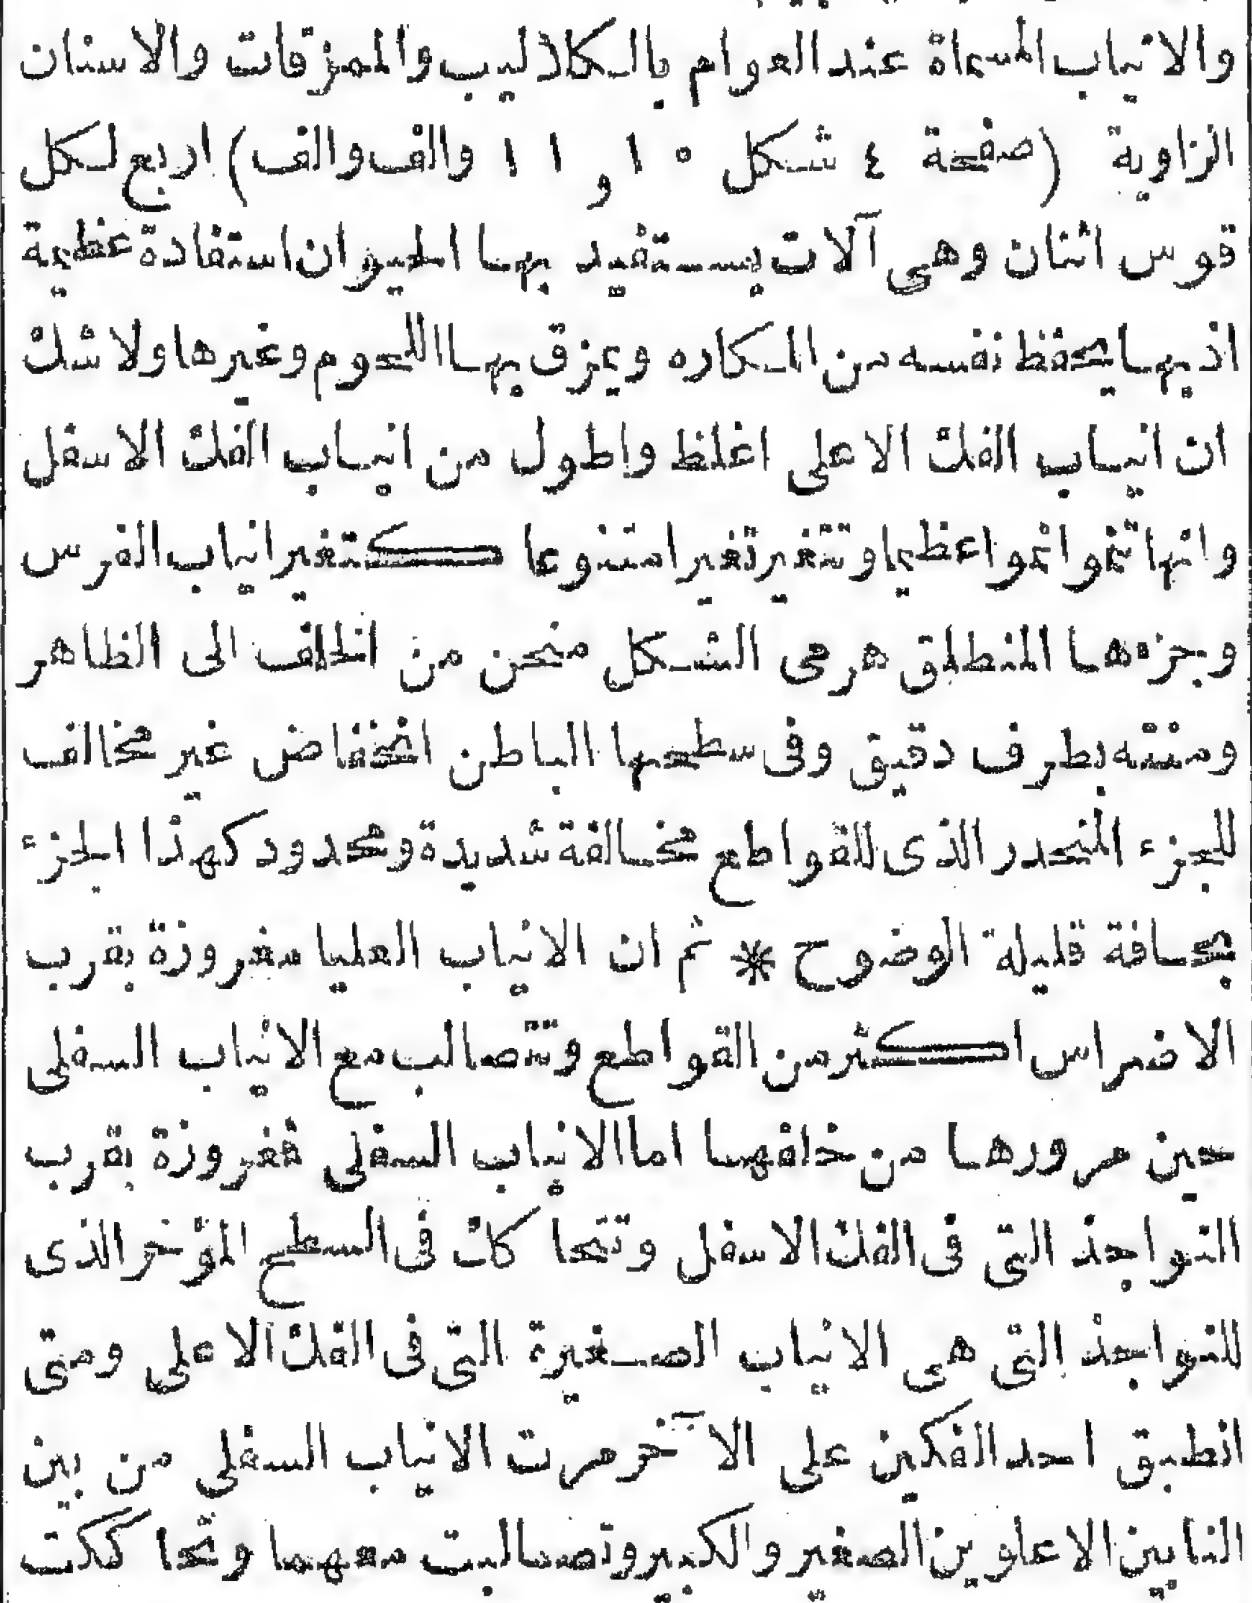 والانياب المسماة عند العوام بالكلاليب والممزقات والاسنان
الزاوية (صفحة ٤ شكل ١٠ و ١١ والف والف) اربع لكل
قوس اثنان وهى آلات يستفيد بها الحيوان استفادة عظيمة
اذ بها يحفظ نفسه من المكاره ويمزق بها اللحوم وغيرها ولا شك
ان انياب الفك الاعلى اغلظ واطول من انياب الفك الاسفل
وانها تنموا نموا عظيما وتتغير تغيرا متنوعا كتغير انياب الفرس
وجزءها المنطلق هرمى الشكل منحن من الخلف الى الظاهر
ومنته بطرف دقيق وفى سطحها الباطن انخفاض غير مخالف
للجزء المنحدر الذى للقواطع مخالفة شديدة ومحدود كهذا الجزء
بحافة قليلة الوضوح * ثم ان الانياب العليا مغروزة بقرب
الاضراس اكثر من القواطع وتتصالب مع الانياب السفلى
حين مرورها من خلفها اما الانياب السفلى فمغروزة بقرب
النواجذ التى فى الفك الاسفل وتتحاكك فى السطح المؤخر الذى
للنواجذ التى هى الانياب الصغيرة التى فى الفك الاعلى ومتى
انطبق احد الفكين على الآخر مرت الانياب السفلى من بين
النابين الاعلوين الصغير والكبير وتصالبت معهما وتحاككت